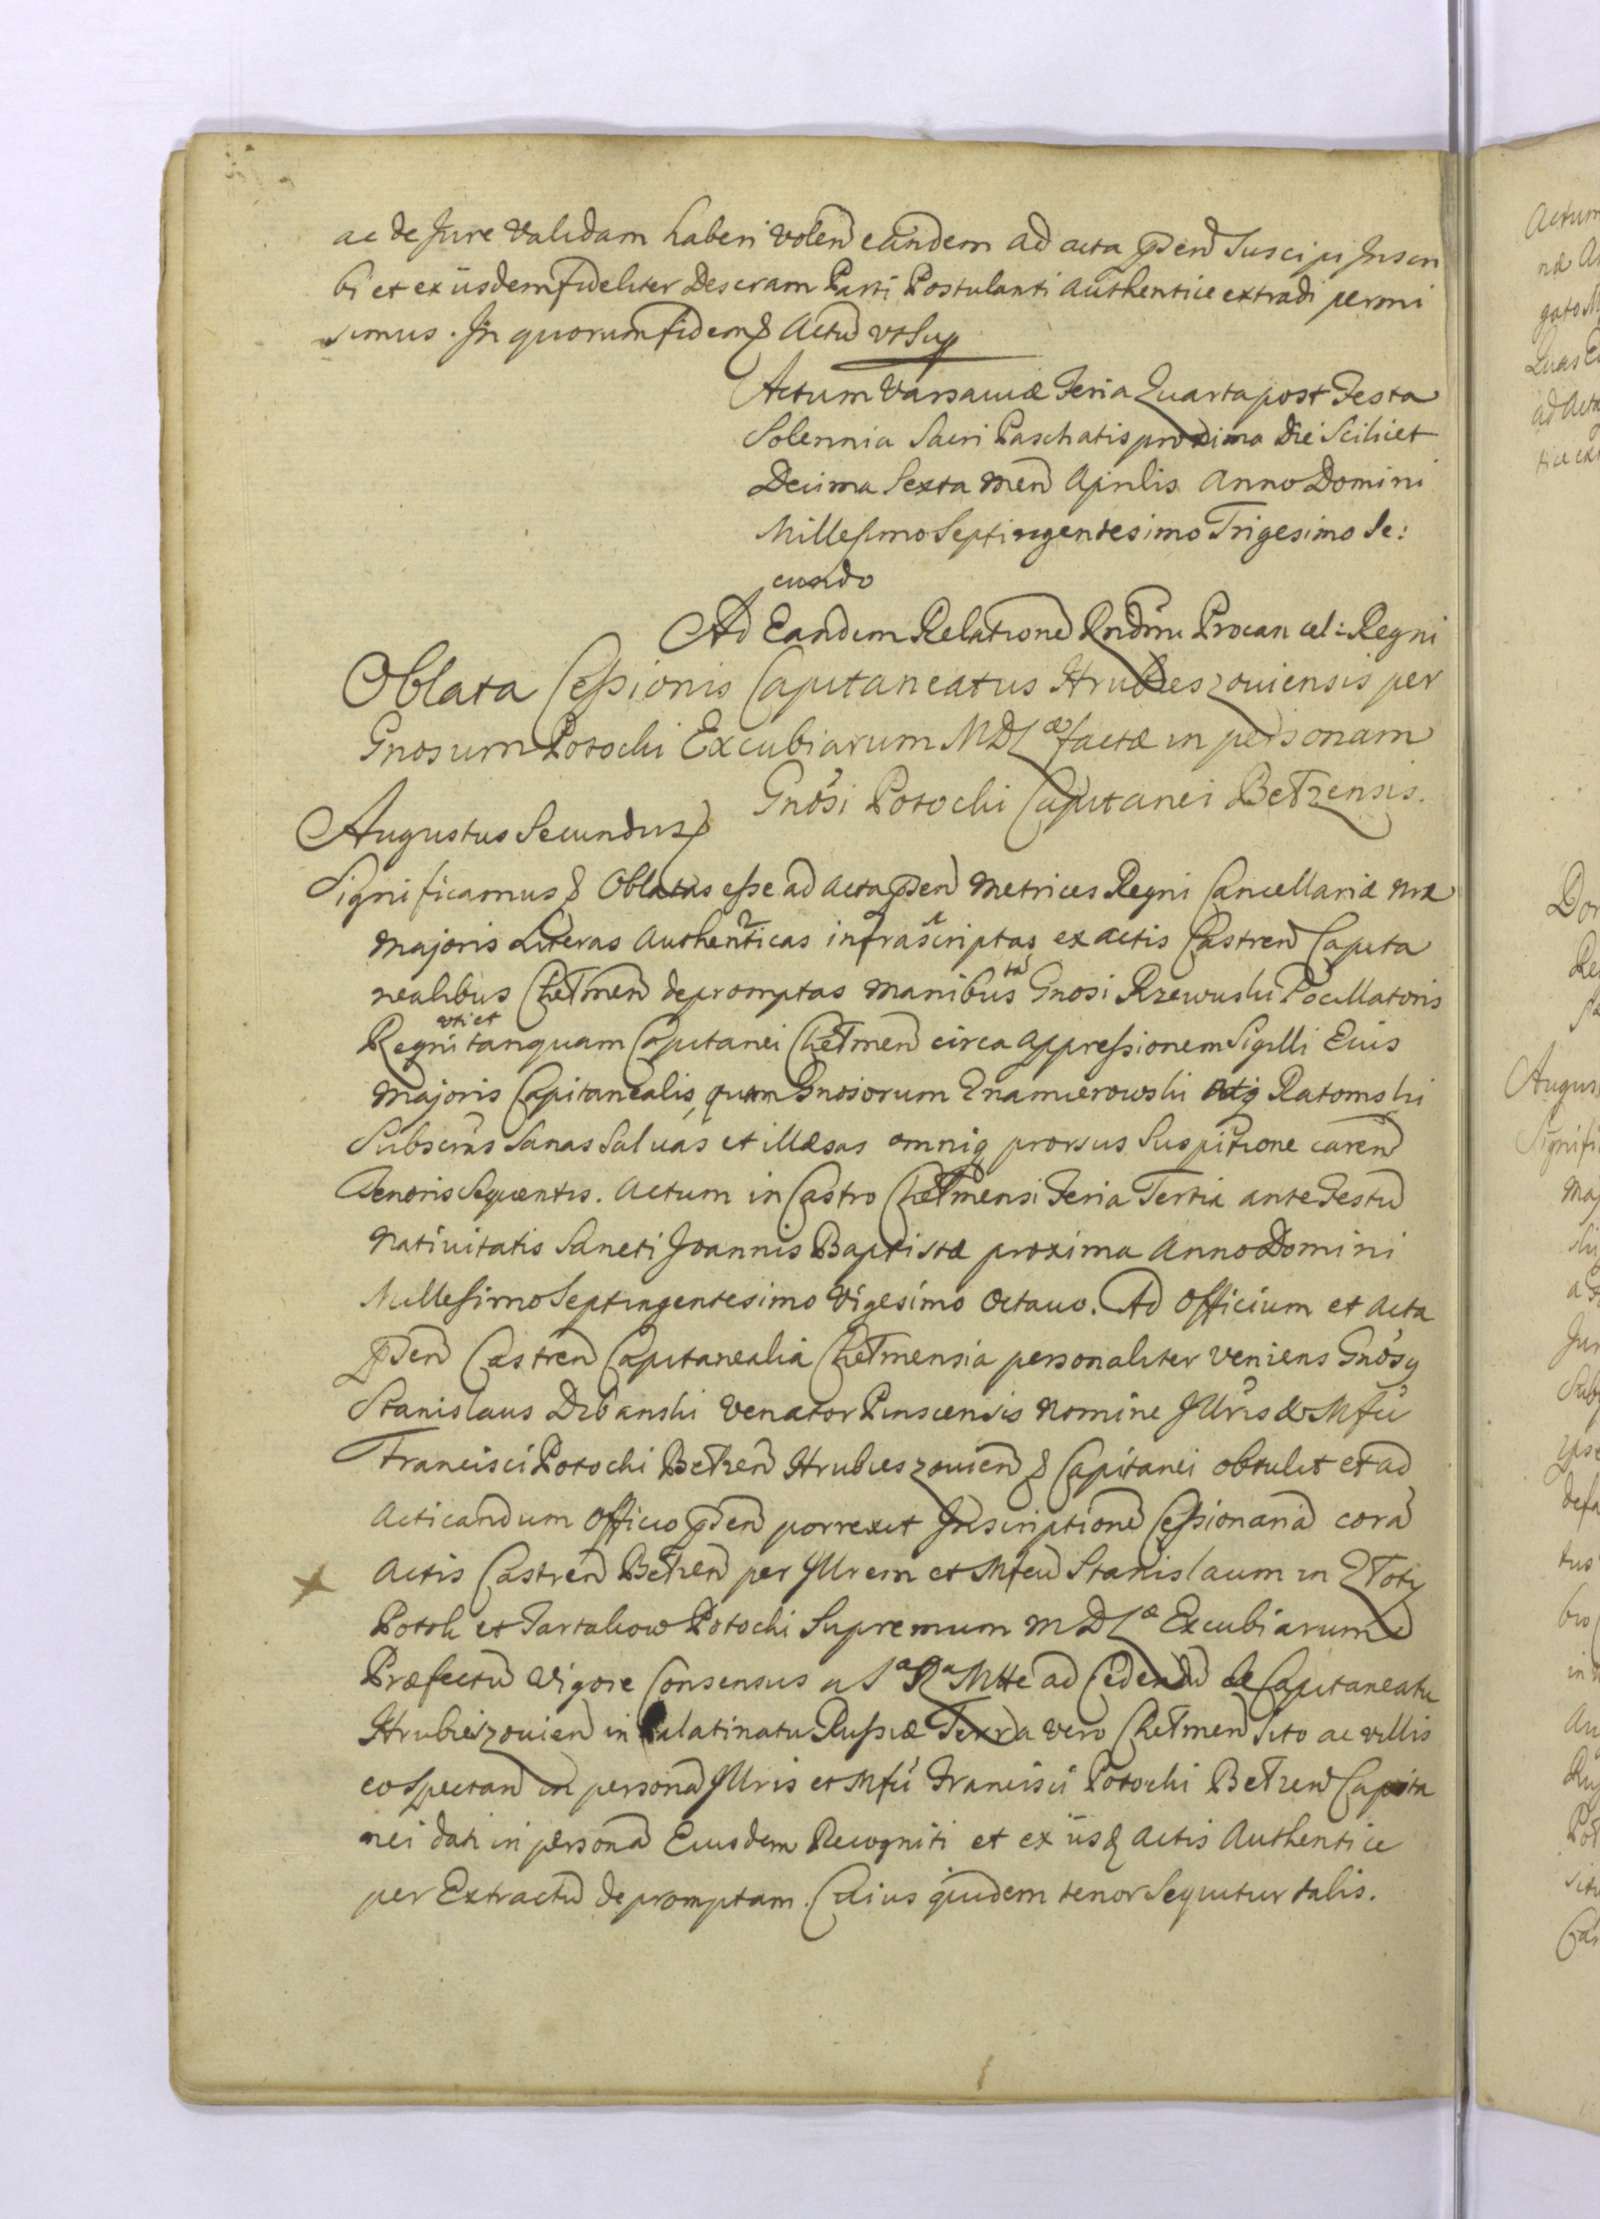 ac de Jure Validam haberi Volend eandem ad acta pñen Suscipi Inscri
bi et ex iisdem fideliter Descram Parti Postulanti Authentice extradi permi
simus. In quorum fidem & Actũ vt Sup
Actum Varsaviæ Feria Quarta post Festa
Solennia Sacri Paschatis proxima Die Scilicet
Decima Sexta Men Aprilis Anno Domini
Millesimo Septingentesimo Trigesimo Se:
cundo
Ad Eandem Relatione Rndmi Procancel: Regni
Oblata Cessionis Capitaneatus Hrubieszoviensis per
Gnosum Potocki Excubiarum M D L æ factæ in personam
Gnosi Potocki Capitanei Bełzensis.
Augustus Secundus &
Significamus & Oblatas esse ad Acta pñen Metrices Regni Cancellariæ Nræ
Majoris Literas Authenticas infrascriptas ex actis Castren Capita
nealibus Chełmen depromptas Manibus tã Gnosi Rzewuski Pocillatoris
Regni uti et tanquam Capitanei Chełmen circa appressionem Sigilli Eius
Majoris Capitanealis, quam Gnosorum Znamierowski atq Ratomski
Subscrãs Sanas Salvas et illæsas omniq prorsus Suspitione caren
Tenoris Sequentis. Actum in Castro Chełmensi Feria Tertia ante Festũ
Nativitatis Sancti Joannis Baptistæ proxima Anno Domini
Millesimo Septingentesimo Vigesimo Octavo. Ad Officium et Acta
pñen Castren Capitanealia Chełmensia personaliter veniens Gnosq
Stanislaus Drbanski Venator Pinscensis Nomine Jllris & Mfci
Francisci Potocki Bełzen Hrubieszovien & Capitanei obtulit et ad
Acticandum Officio pñen porrexit Inscriptionẽ Cessionariã corã
Actis Castren Bełzen per Jllrem et Mfcũ Stanislaum in Złoty
Potok et Tartakow Potocki Supremum M D L æ Excubiarum
Præfectũ Vigore Consensus a S a R a Mtte ad Cedendũ de Capitaneatu
Hrubieszovien in Palatinatu Russiæ Terra vero Chełmen Sito ac villis
eo Spectan in personã Jllris et Mfci Francisci Potocki Bełzen Capita
nei dati in personã Eiusdem Recogniti et ex iisd Actis Authentice
per Extractũ depromptam. Cuius quidem tenor Sequitur talis.